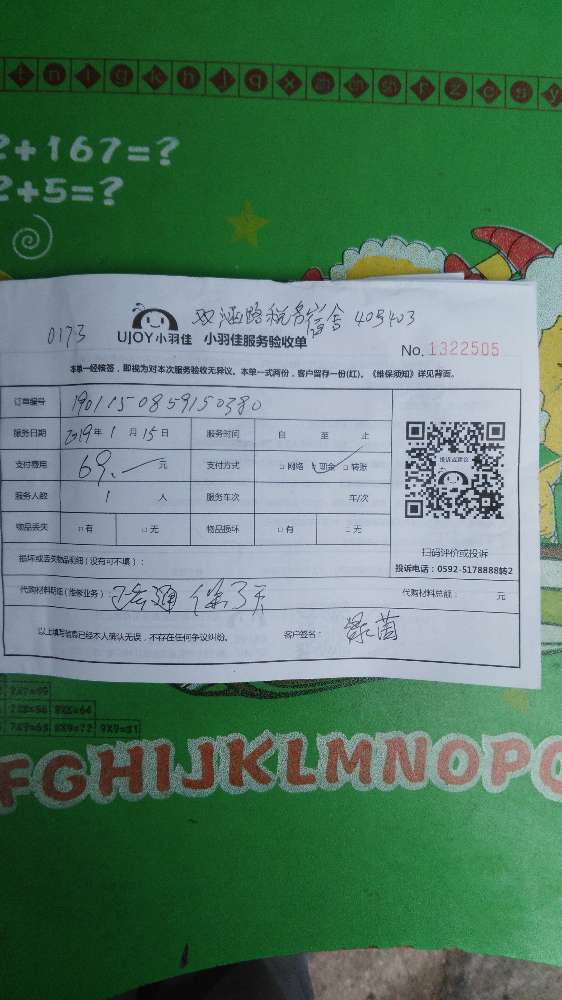 t n i g k h j q x zh sh r z c y
2+167=?
2+5=?
0173
双涵路税务宿舍 403403
UJOY小羽佳 小羽佳服务验收单
No. 1322505
本单一经核签，即视为对本次服务验收无异议。本单一式两份，客户留存一份(红)。《维保须知》详见背面。
订单编号 1901150859150380
服务日期 2019年 1 月 15 日 服务时间 自 至 止
支付费用 69.— 元 支付方式 □网络 ☑现金 □转账
服务人数 1 人 服务车次 车/次
物品丢失 □有 □无 物品损坏 □有 □无
投诉或建议
扫码评价或投诉
投诉电话：0592-5178888转2
损坏或丢失物品明细（没有可不填）：
代购材料明细（维修业务）： 代购材料总额： 元
以上填写信息已经本人确认无误，不存在任何争议纠纷。 客户签名：
7X8=56 8X8=64
7X9=63 8X9=72 9X9=81
FGHIJKLMNOPQ